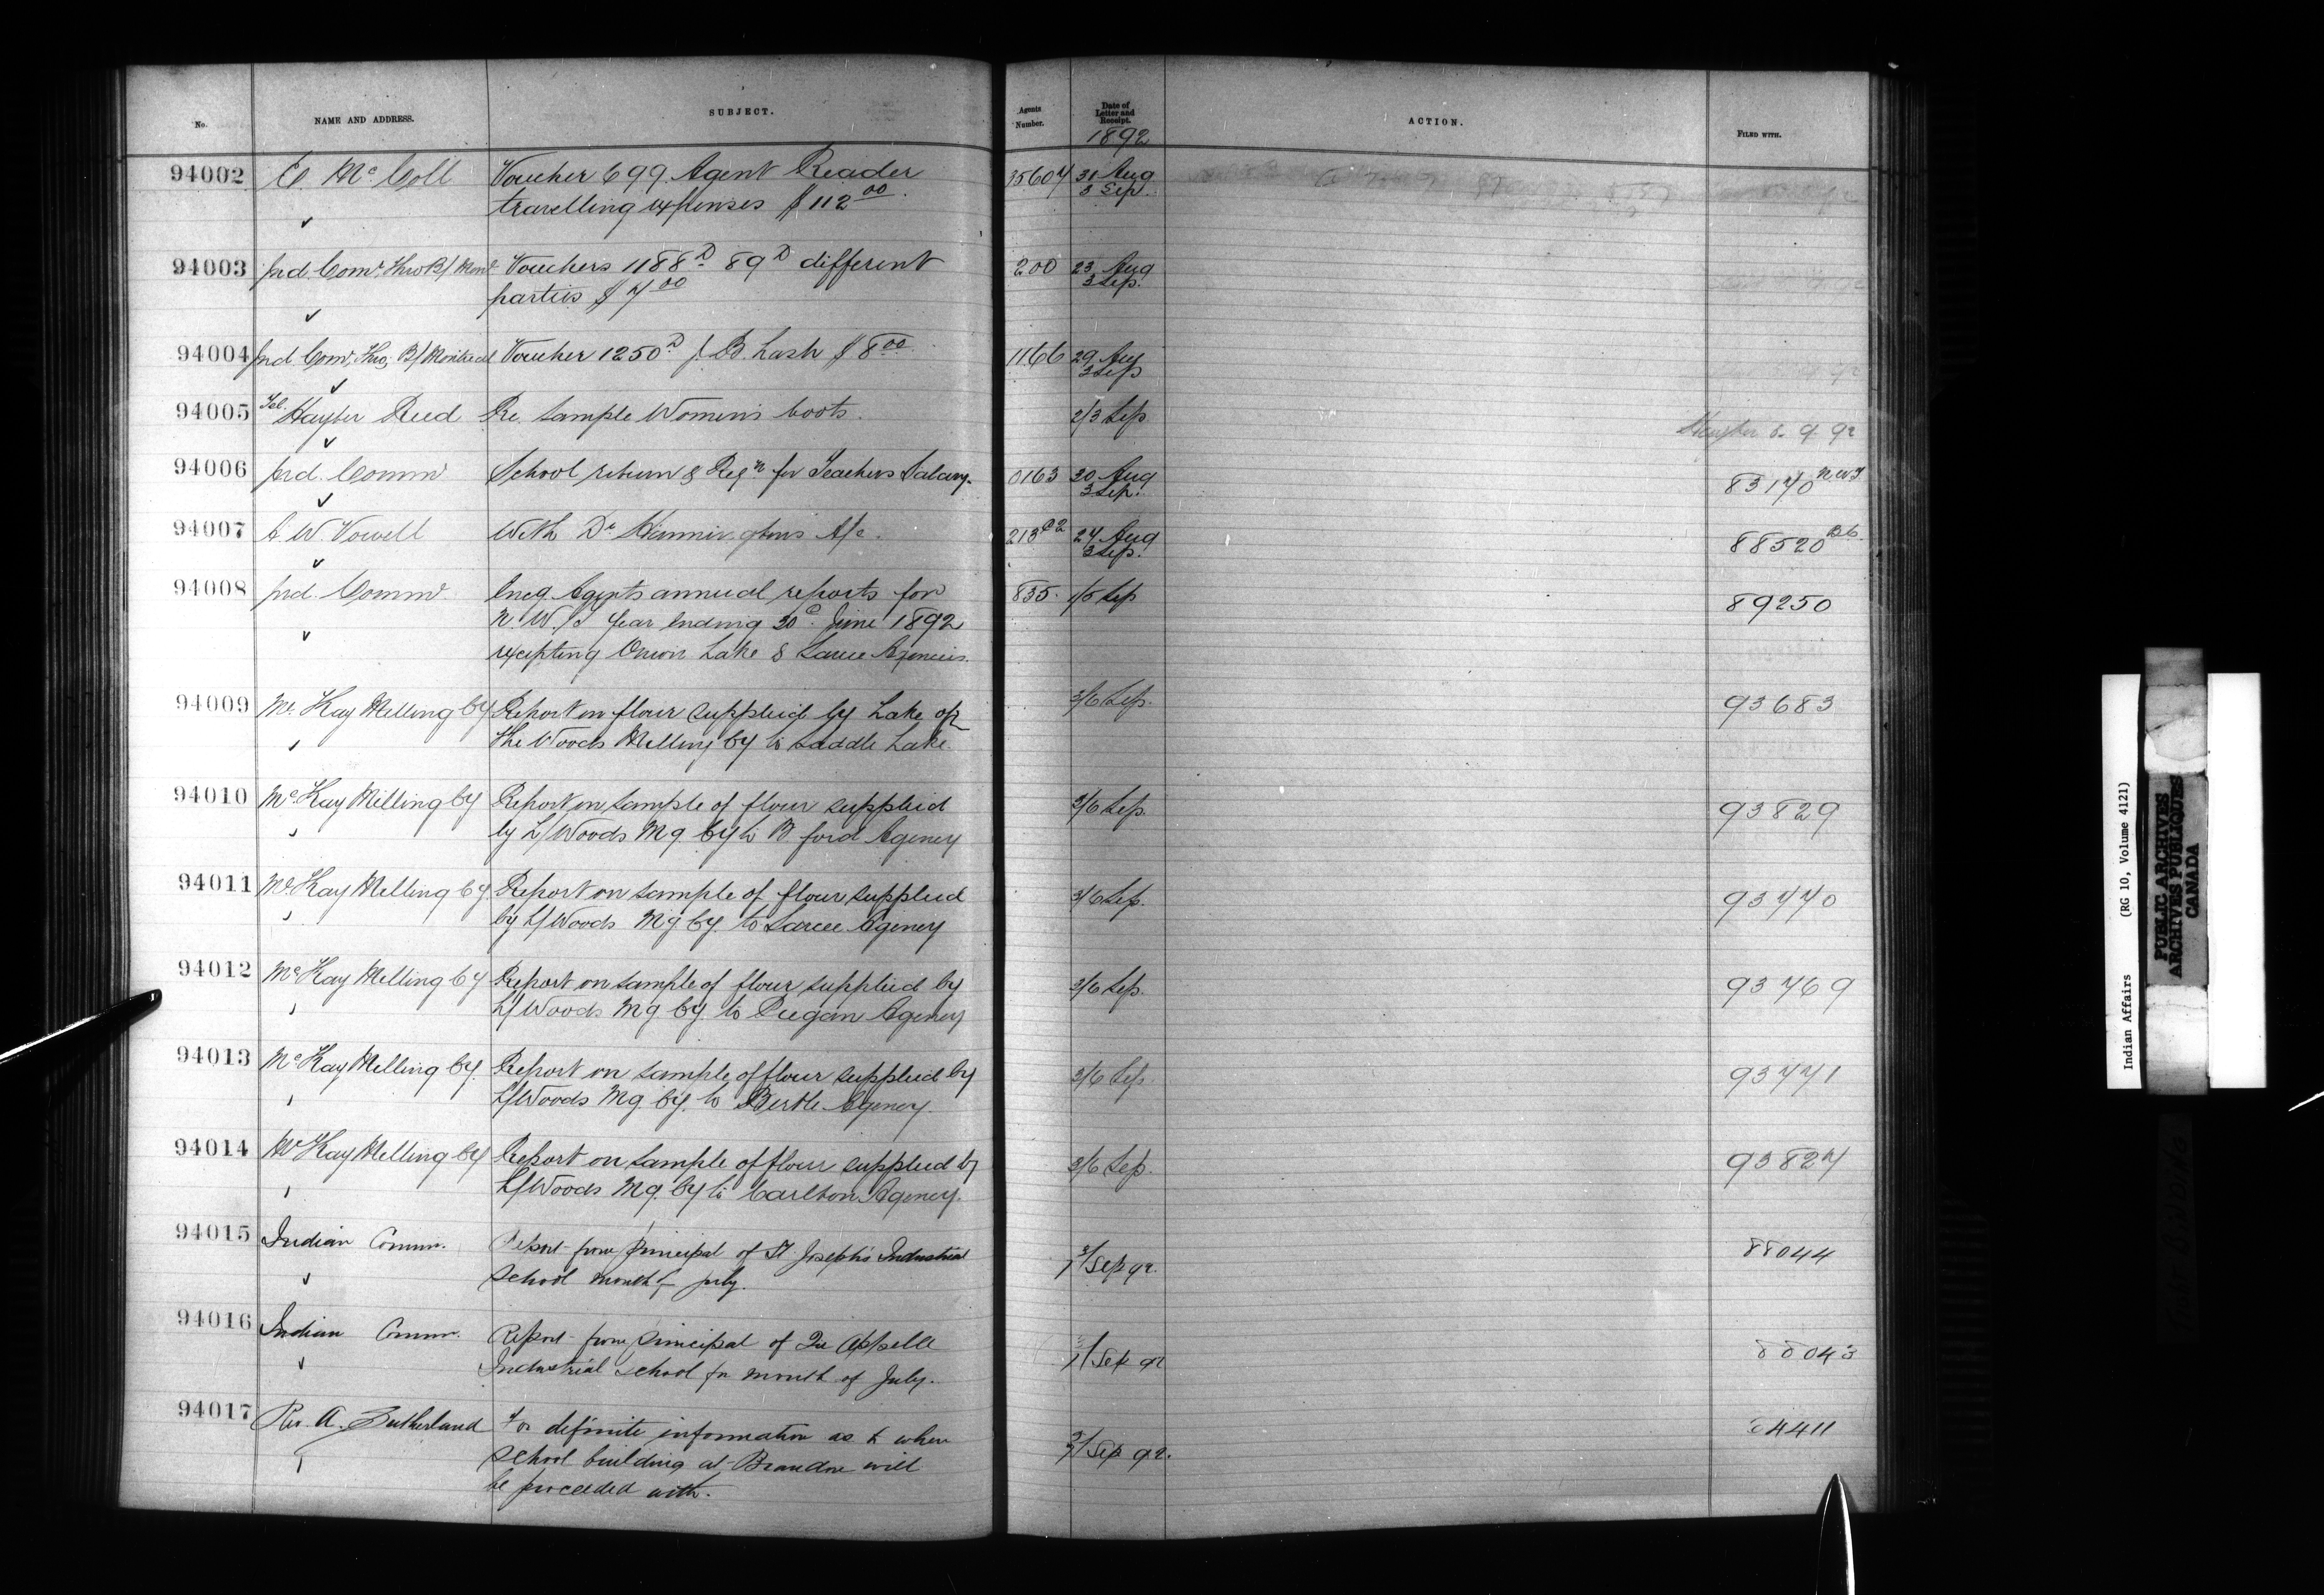 No. NAME AND ADDRESS. SUBJECT. Agents Number. Date of Letter and Receipt. ACTION. FILED WITH.
1892
94002 E. McColl Voucher 699. Agent Reader 35604 31 Aug
travelling expenses $112 00. 3 Sep.
94003 Ind. Comr. Thro B/ Monl Vouchers 1188 D 89 D different 200 23 Aug
parties $7 00 3 Sep.
94004 Ind. Comr. Thro, B/ Montreal Voucher 1250 D J. B. Lash $8 00 1166 29 Aug
3 Sep
94005 Tel. Hayter Reed Re. Sample Women's boots. 2/3 Sep
Hayter 8. 9. 92
94006 Ind. Comm School return & Reqn for Teachers Salary. 0163 30 Aug 83170 N.W.T
3 Sep.
94007 A. W. Vowell With Dr Hannington's A/c. 213 24 Aug 88520 B.C.
3 Sep.
94008 Ind. Commr Encg. Agents annual reports for 835. 1/5 Sep 89250
N. W. T. Year ending 30 June 1892
excepting Onion Lake & Sarcee Agencies.
94009 McKay Milling Cy Report on flour supplied by Lake of 3/6 Sep. 93683
the Woods Milling Cy to Saddle Lake.
94010 McKay Milling Cy Report on sample of flour supplied 3/6 Sep. 93829
by L/Woods Mg. Cy to B. ford Agency
94011 McKay Milling Cy Report on sample of flour supplied 3/6 Sep. 93770
by L/Woods Mg Cy. to Sarcee Agency
94012 McKay Milling Cy Report on sample of flour supplied by 3/6 Sep. 93769
L/Woods Mg Cy. to Piegan Agency
94013 McKay Milling Cy. Report on sample of flour supplied by 3/6 Sep. 93771
L/Woods Mg. Cy. to Birtle Agency.
94014 McKay Milling Cy Report on sample of flour supplied by 3/6 Sep. 93827
L/Woods Mg. Cy to Carlton Agency.
94015 Indian Commr. Report from principal of St Joseph's Industrial 88044
School month of July. 3/7 Sep 92.
94016 Indian Commr. Report from principal of Qu Appelle 88043
Industrial School for month of July. Sep 92
94017 Rev. A. Sutherland For definite information as to when 4411
school building at Brandon will Sep 92.
be proceeded with.
Indian Affairs (RG 10, Volume 4121)
PUBLIC ARCHIVES
ARCHIVES PUBLIQUES
CANADA